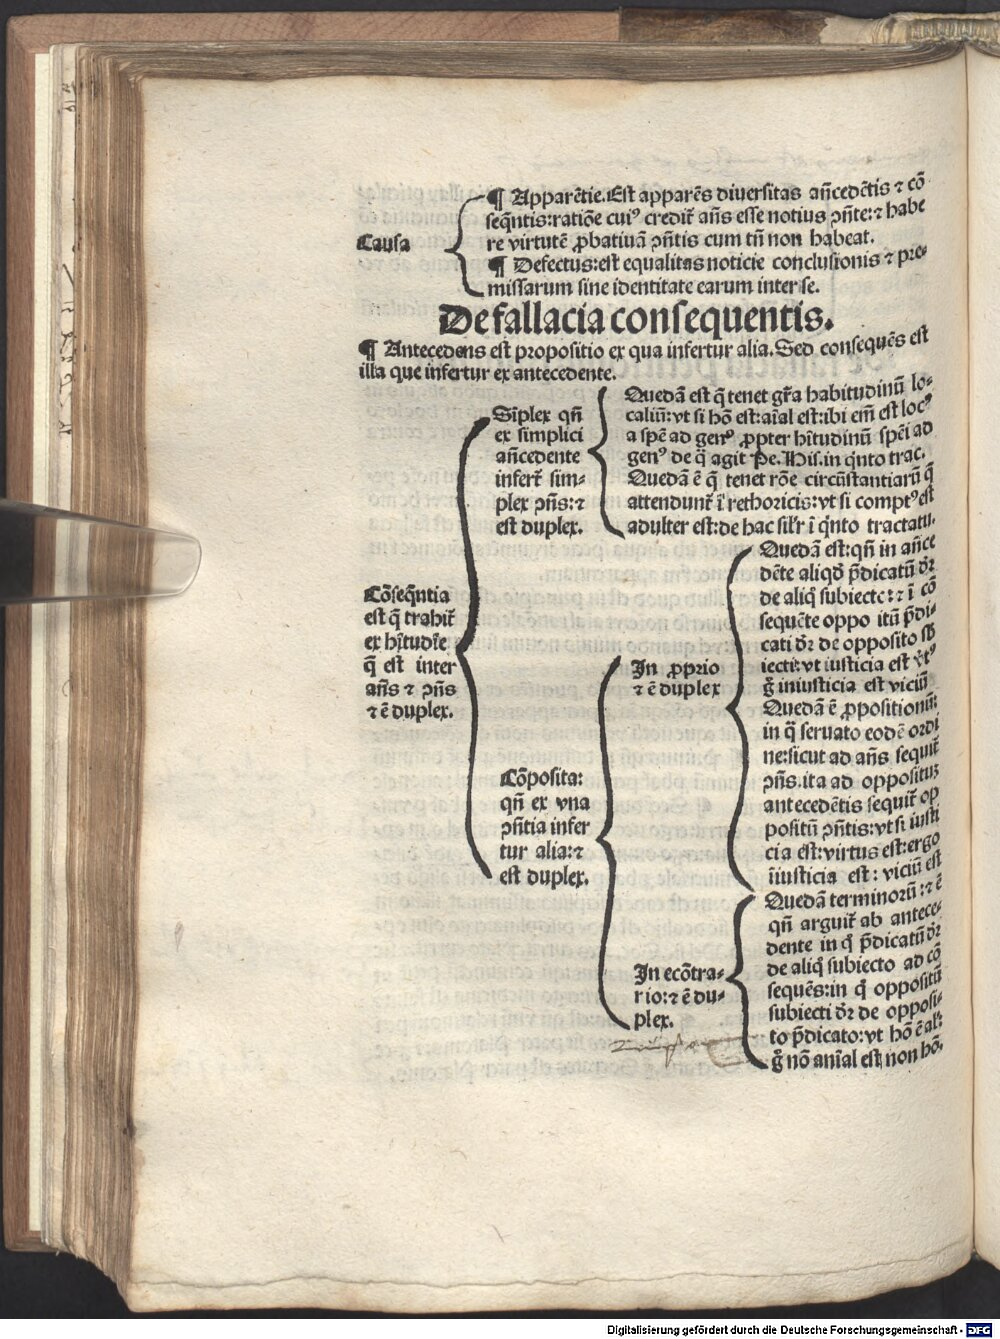 ¶ Apparētie. Est apparēs diuersitas añcedētis ⁊ cō
seq̄ntis: ratiōe cuiꝰ credit᷑ añs esse notius ꝯ̃nte: ⁊ habe
Causa
re virtutē ꝓbatiuā ꝯ̃ntis cum tñ non habeat.
¶ Defectus: est equalitas noticie conclusionis ⁊ pre-
missarum sine identitate earum inter se.
De fallacia consequentis.
¶ Antecedens est propositio ex qua infertur alia. Sed consequēs est
illa que infertur ex antecedente.
Cōseq̄ntia
est q̄ trahit᷑
ex hītudīe
q̄ est inter
añs ⁊ ꝯ̃ns
⁊ ē duplex.
Sīplex qñ
ex simplici
añcedente
infert᷑ sim-
plex ꝯ̃ns: ⁊
est duplex.
Quedā est q̄ tenet gr̄a habitudinū lo-
caliū: vt si hō est: aīal est: ibi em̄ est locꝰ
a spē ad genꝰ ꝓpter hītudinū spēi ad
genꝰ de q̄ agit Pe. His. in q̄nto trac.
Quedā ē q̄ tenet rōe circūstantiarū q̄
attendunt᷑ ī rethoricis: vt si comptꝰ est
adulter est: de hac sil'r ī q̄nto tractatu.
Cōposita:
qñ ex vna
ꝯ̃ntia infer
tur alia: ⁊
est duplex.
In ꝓprio
⁊ ē duplex
Quedā est: qñ in añce
dēte aliqd̄ p̄dicatū dr̄
de aliq̄ subiecto: ⁊ ī cō
sequēte oppo itū p̄di-
cati dr̄ de opposito sb̄
iecti: vt iusticia est v̓tꝰ
g̊ iniusticia est viciū
Quedā ē ꝓpositionū:
in q̄ seruato eodē ordi
ne: sicut ad añs sequit᷑
ꝯ̃ns. ita ad oppositū
antecedētis sequit᷑ op
positū ꝯ̃ntis: vt si iusti
cia est: virtus est: ergo
īiusticia est: viciū est
In ecōtra-
rio: ⁊ ē du-
plex.
Quedā terminorū: ⁊ ē
qñ arguit᷑ ab antece-
dente in q̊ p̄dicatū dr̄
de aliq̊ subiecto ad cō
sequēs: in q̊ oppositū
subiecti dr̄ de opposi-
to p̄dicato: vt hō ē al':
g̊ nō anīal est non hō.
Digitalisierung gefördert durch die Deutsche Forschungsgemeinschaft - DFG